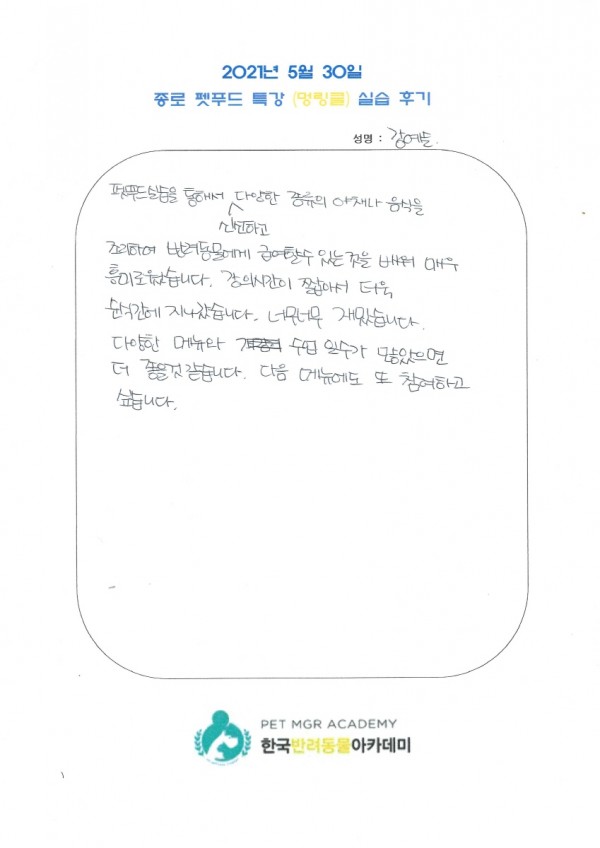 2021년 5월 30일
종로 펫푸드 특강 (멍링쿨) 실습 후기
성명 : 강예든
펫푸드실습을 통해서 다양한 종류의 야채나 음식을
신선하고
조리하여 반려동물에게 급여할수 있는것을 배워 매우
흥미로웠습니다. 강의시간이 짧아서 더욱
순식간에 지나갔습니다. 너무너무 재밌습니다.
다양한 메뉴와 수업 일수가 많았으면
더 좋을것 같습니다. 다음 메뉴에도 또 참여하고
싶습니다.
PET MGR ACADEMY
한국반려동물아카데미